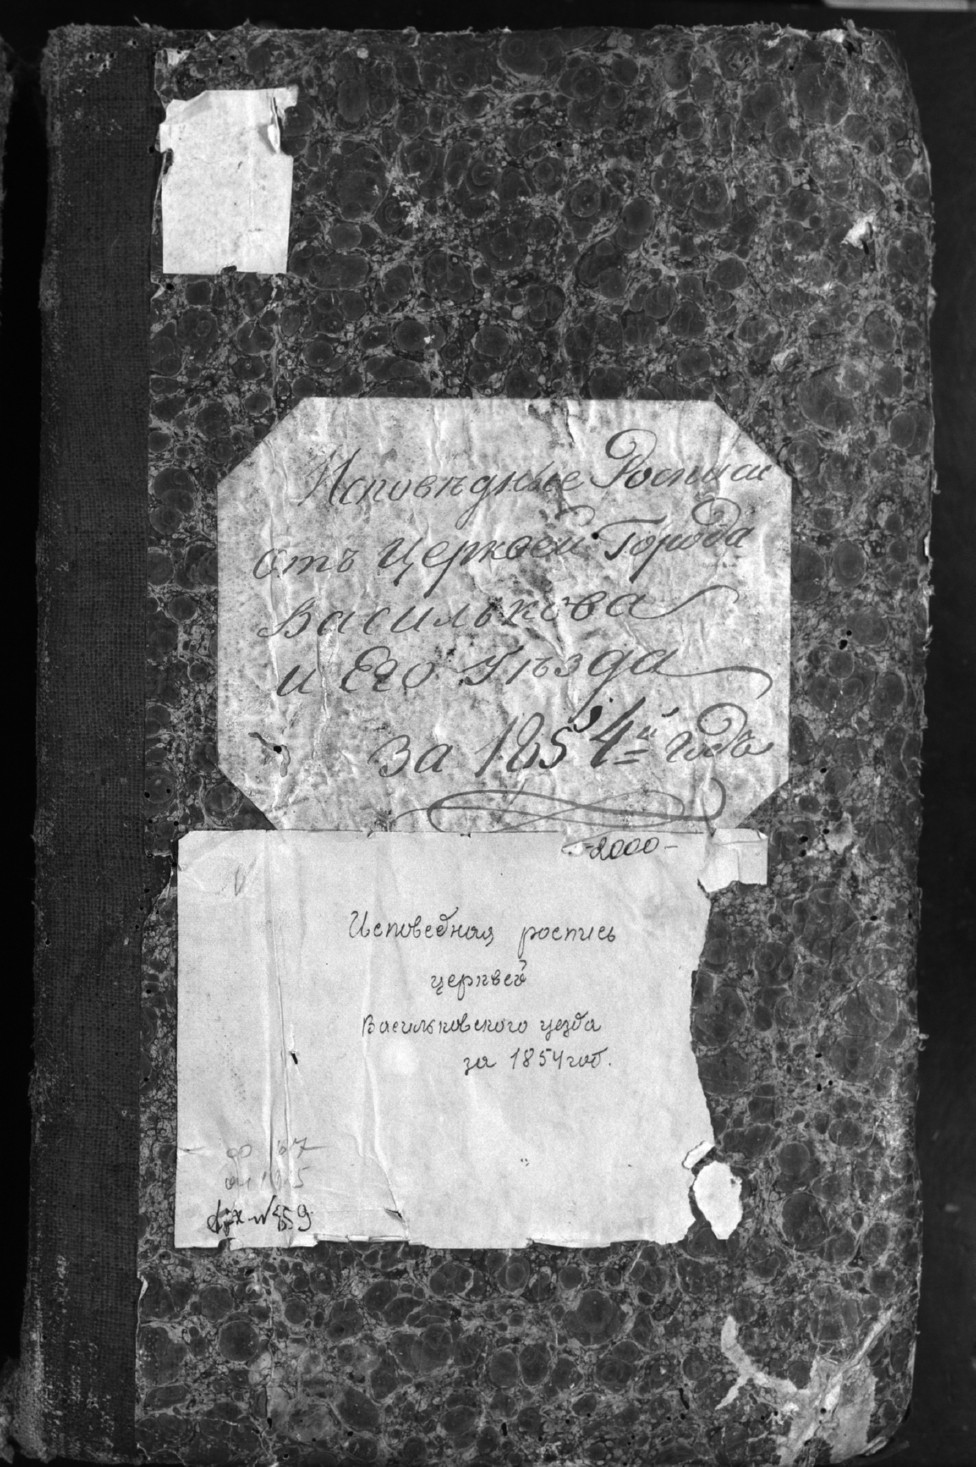 Исповѣдные Росписи
отъ Церквей Города
Василькова
и Его Уѣзда
за 1854й годъ
-2000-
Исповедная роспись
церквей
Васильковского уезда
за 1854 год.